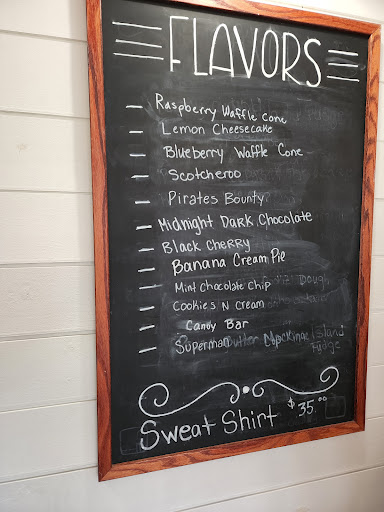 FLAVORS
Raspberry Waffle Cone
Lemon Cheesecake
Blueberry Waffle Cone
Scotcheroo
Pirates Bounty
Midnight Dark Chocolate
Black Cherry
Banana Cream Pie
Mint Chocolate Chip Dough
Cookies N Cream
Candy Bar
Superman Butter Mackinac Island
Fudge
Sweat Shirt $35.00